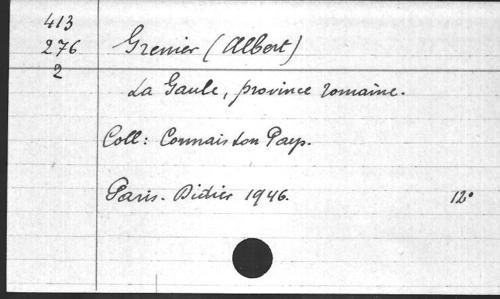 413
276 Grenier (Albert)
2
La Gaule, province romaine.
Coll: Connais ton Pays.
Paris. Didier 1946. 12°